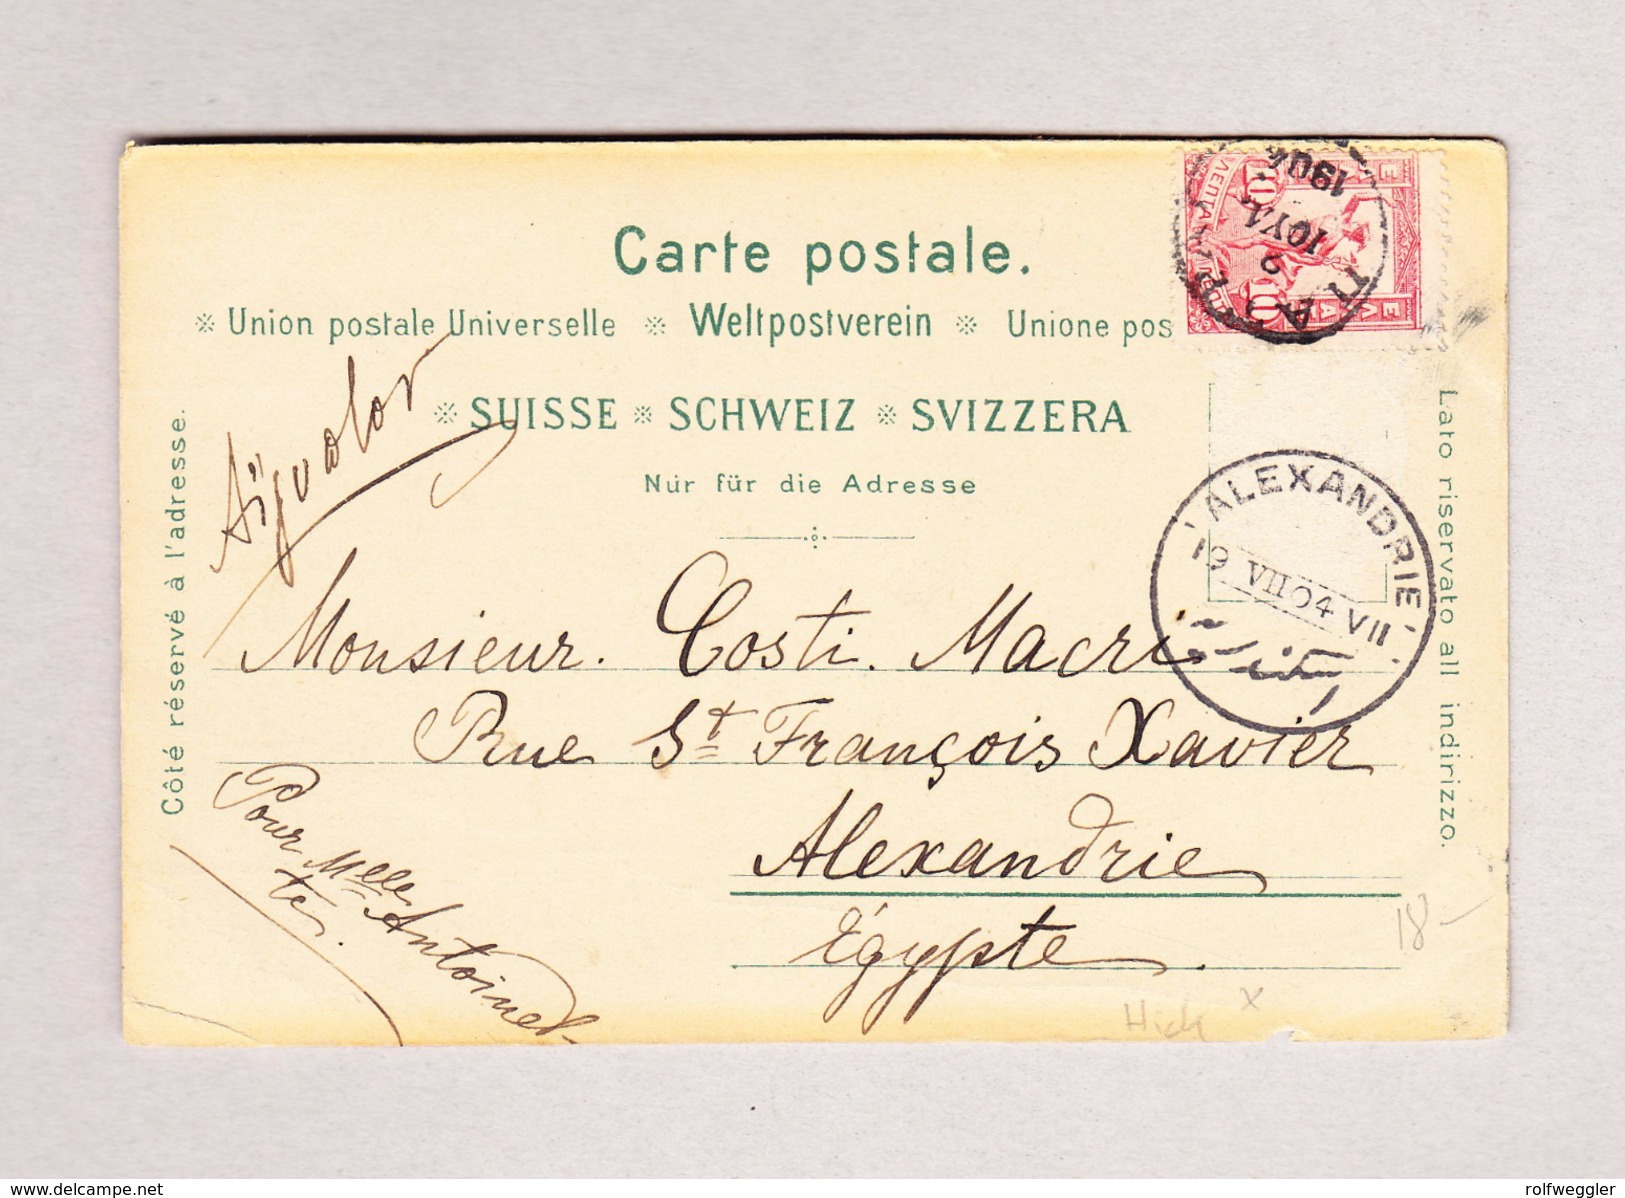 Carte postale.
※ Union postale Universelle ※ Weltpostverein ※ Unione pos
※ SUISSE ※ SCHWEIZ ※ SVIZZERA
Nur für die Adresse
Côté réservé à l'adresse.
Lato riservato all indirizzo.
ΛΕΠΤΑ
10
10
ΕΛΛ
1904
2 ΙΟΥΛ
ALEXANDRIE
19 VII 04 VII
Monsieur. Costi. Macri
Rue St François Xavier
Alexandrie
Égypte.
Pour Melle Antoinet-
te.
18-
x
www.delcampe.net
rolfweggler